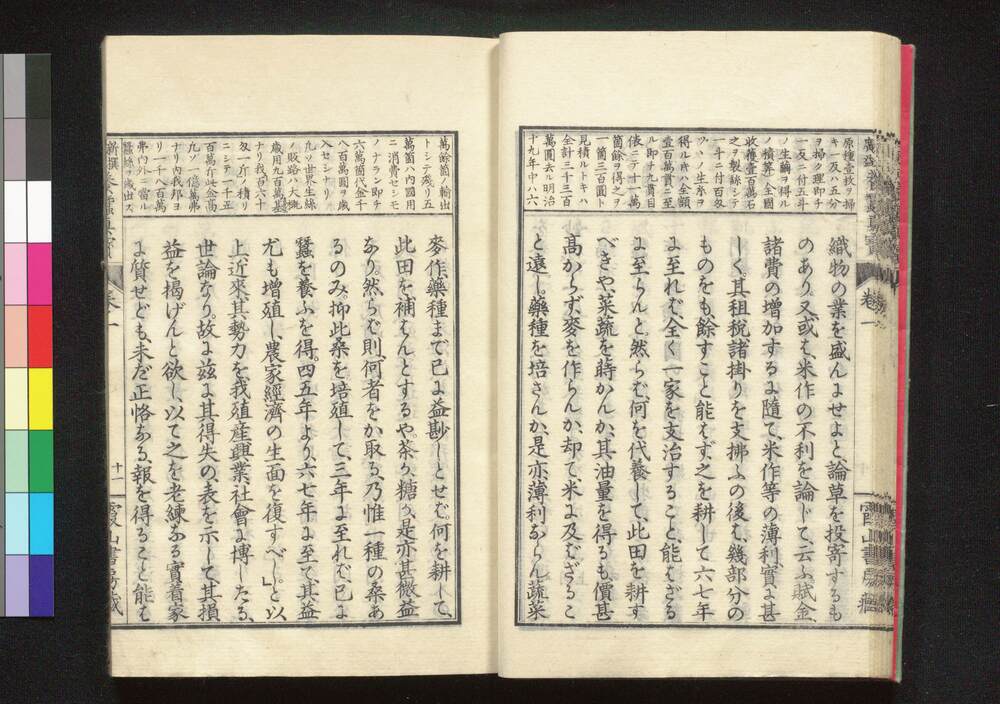 原種壹枚ヲ掃
キ一反ハ五分
ヲ掃ク理即チ
一反ニ付五斗
ノ生繭ヲ得ル
ノ積算ノ全國
收穫壹百萬石
之ヲ製絲シテ
一斗ニ付百匁
ツヽノ生糸ヲ
得ルトキハ全額
壹百萬貫ニ至
ル即チ九貫目
俵ニテ十一萬
箇餘ヲ得之ヲ
一箇三百圓ト
見積ルトキハ
全計三千三百
萬圓去ル明治
十九年中ハ六
織物の業を盛んにせよと、論草を投寄するも
のあり、又或は、米作の不利を論じて、云ふ、賦金、
諸費の増加するに隨て、米作等の薄利、實に甚
しく、其租税諸掛りを支拂ふの後は、幾部分の
ものをも、餘すこと能はず、之を耕して六七年
に至れば、全く一家を支治すること、能はざる
に至らんと、然らば、何を代養して、此田を耕す
べきや、菜蔬を蒔かんか、其油量を得るも、價甚
高からず、麥を作らんか、却て、米に及ばざるこ
と遠し、藥種を培さんか、是亦薄利ならん、蔬菜
卷一
萬餘箇ノ輸出
トシテ殘リ五
萬箇ハ内國用
ニ消費セシモ
ノナラン即チ
六萬箇代金千
八百萬圓ヲ歳
入セシナリ
凡ソ世界生絲
ノ販路ハ大概
歳用九百萬基
ナリ我百六十
匁一斤ノ積リ
ニシテ一千五
百萬斤此金高
凡ソ一億萬弗
ナリ内我邦ヨ
リ一千八百萬
弗内外ニ當ル
蠶絲ヲ歳出ス
麥作、藥種まで已に益尠しとせば、何を耕して、
此田を補はんとするや、茶か、糖か、是亦甚微益
なり、然らば則、何者をか取る、乃惟一種の桑あ
るのみ、抑此桑を培殖して、三年に至れば、已に
蠶を養ふを得、四五年より、六七年に至て、其益
尤も増殖し、農家經濟の生面を復すべし」と、以
上、近來、其勢力を我殖産興業社會に博したる、
世論なり、故に茲に其得失の、表を示して其損
益を揭げんと欲し、以て之を老練なる實着家
に質せども、未だ正恪なる、報を得ること能は
卷一
十一
霞山書房藏